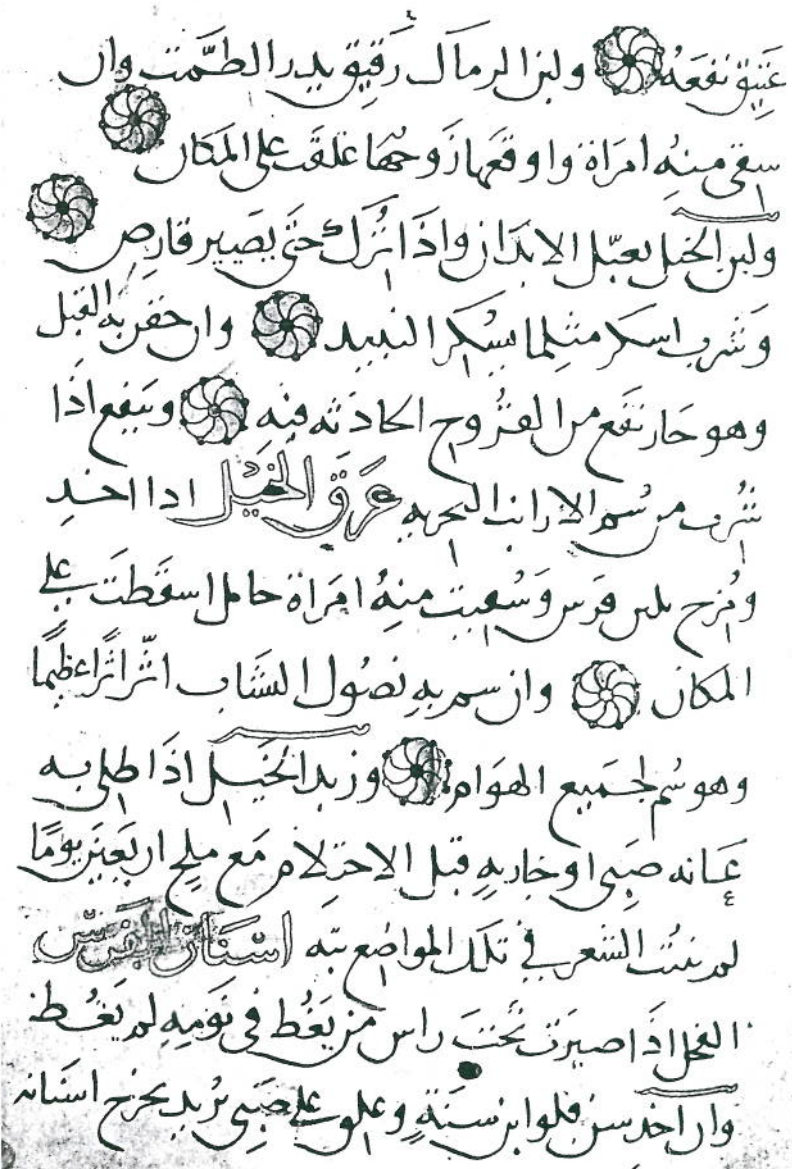 عتيق نفعه ولبن الرماك رقيق يدر الطمث وان
سقي منه امراة واوقعها زوجها علقت على المكان
ولبن الخيل يعبّل الابدان واذا اترك حتى يصير قارص
وشرب اسكر مثلما يسكر النبيد وان حقن به القبل
وهو حار نفع من القروح الحادثه فيه وينفع اذا
شرب من سم الارانب البحريه عرق الخيل اذا اخد
ومزح بلبن فرس وسقيت منه امراة حامل اسقطت على
المكان وان سم به نصول النشاب اثر اثرا عظيما
وهو سم لجميع الهوام وزبد الخيل اذا طلي به
عانه صبي او جاريه قبل الاحتلام مع ملح اربعين يوما
لم ينبت الشعر في تلك المواضع بته اسنان الفرس
الفحل اذا صيرت تحت راس من يغط في نومه لم يغط
وان اخد سن فلو ابن سنة وعلق على صبي يريد يخرج اسنانه